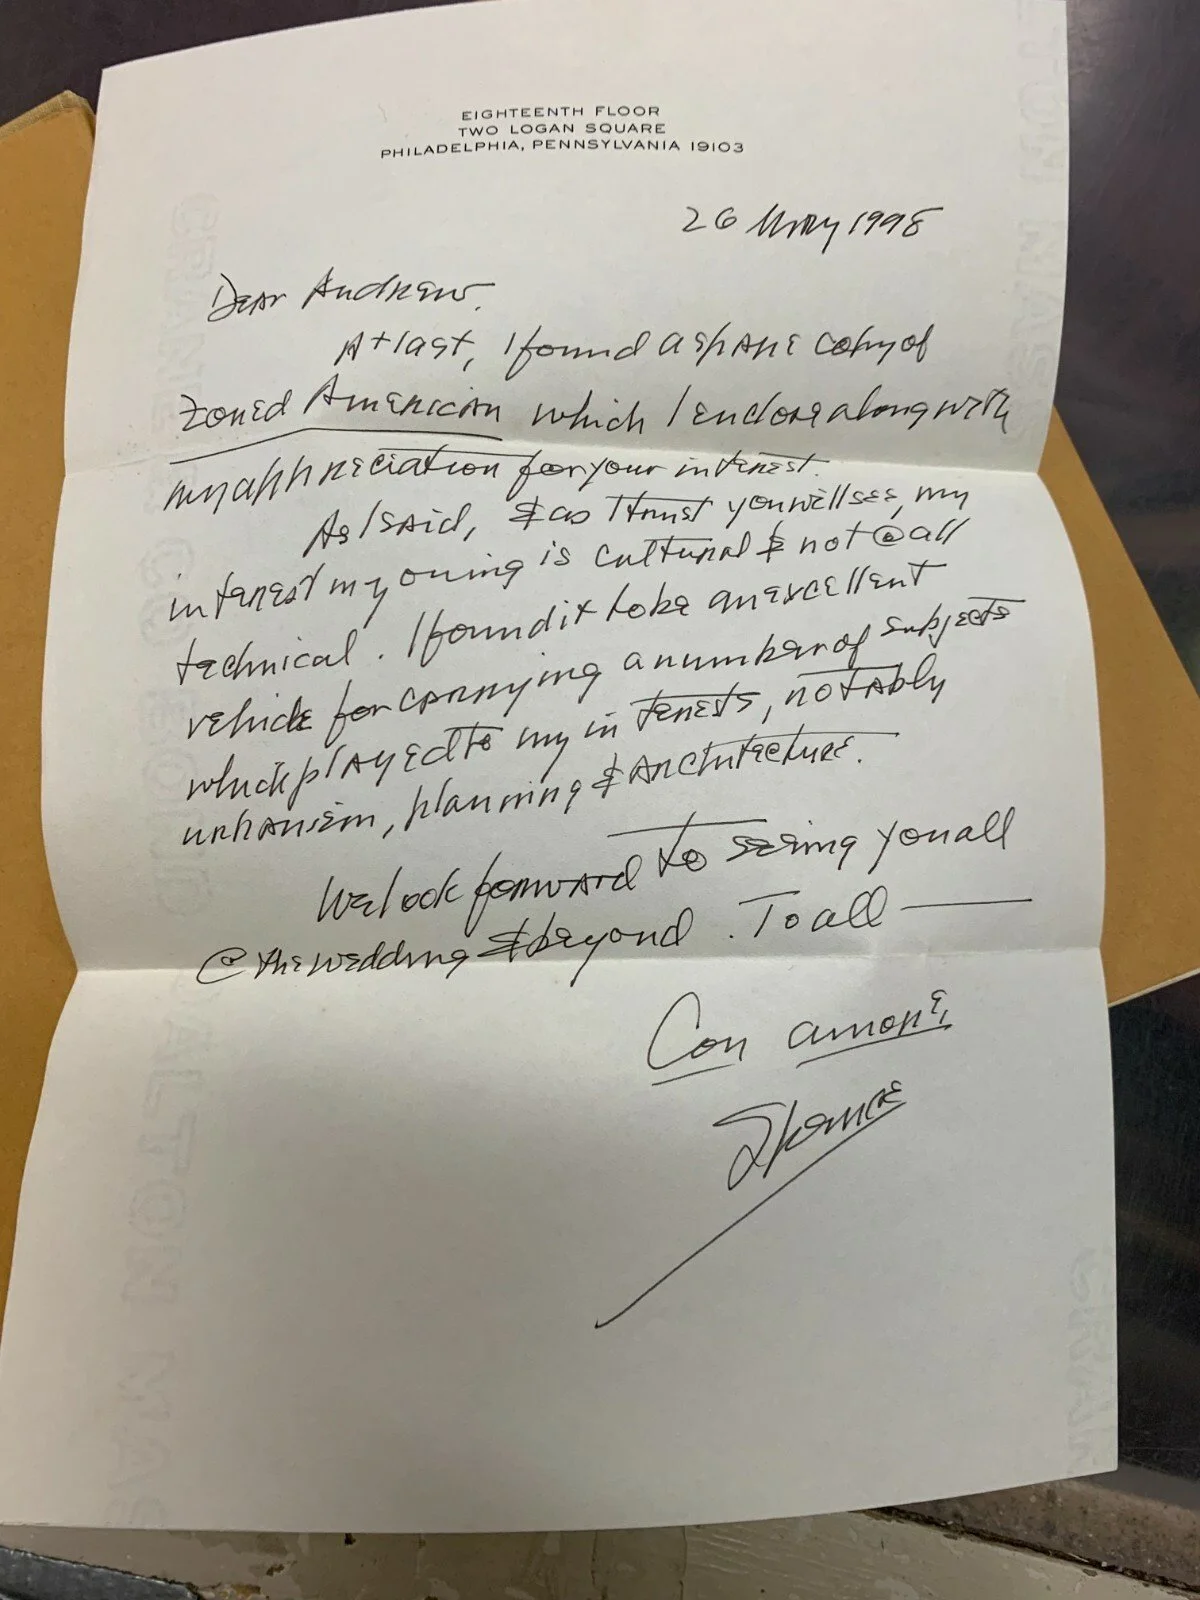 EIGHTEENTH FLOOR
TWO LOGAN SQUARE
PHILADELPHIA, PENNSYLVANIA 19103
26 May 1998
Dear Andrew.
At last, I found a spare copy of
Zoned American which I enclose along with
my appreciation for your interest.
As I said, & as I trust you will see, my
interest in zoning is cultural & not @ all
technical. I found it to be an excellent
vehicle for carrying a number of subjects
which played to my interests, notably
urbanism, planning & architecture.
We look forward to seeing you all
@ the wedding & beyond. To all —
Con amore,